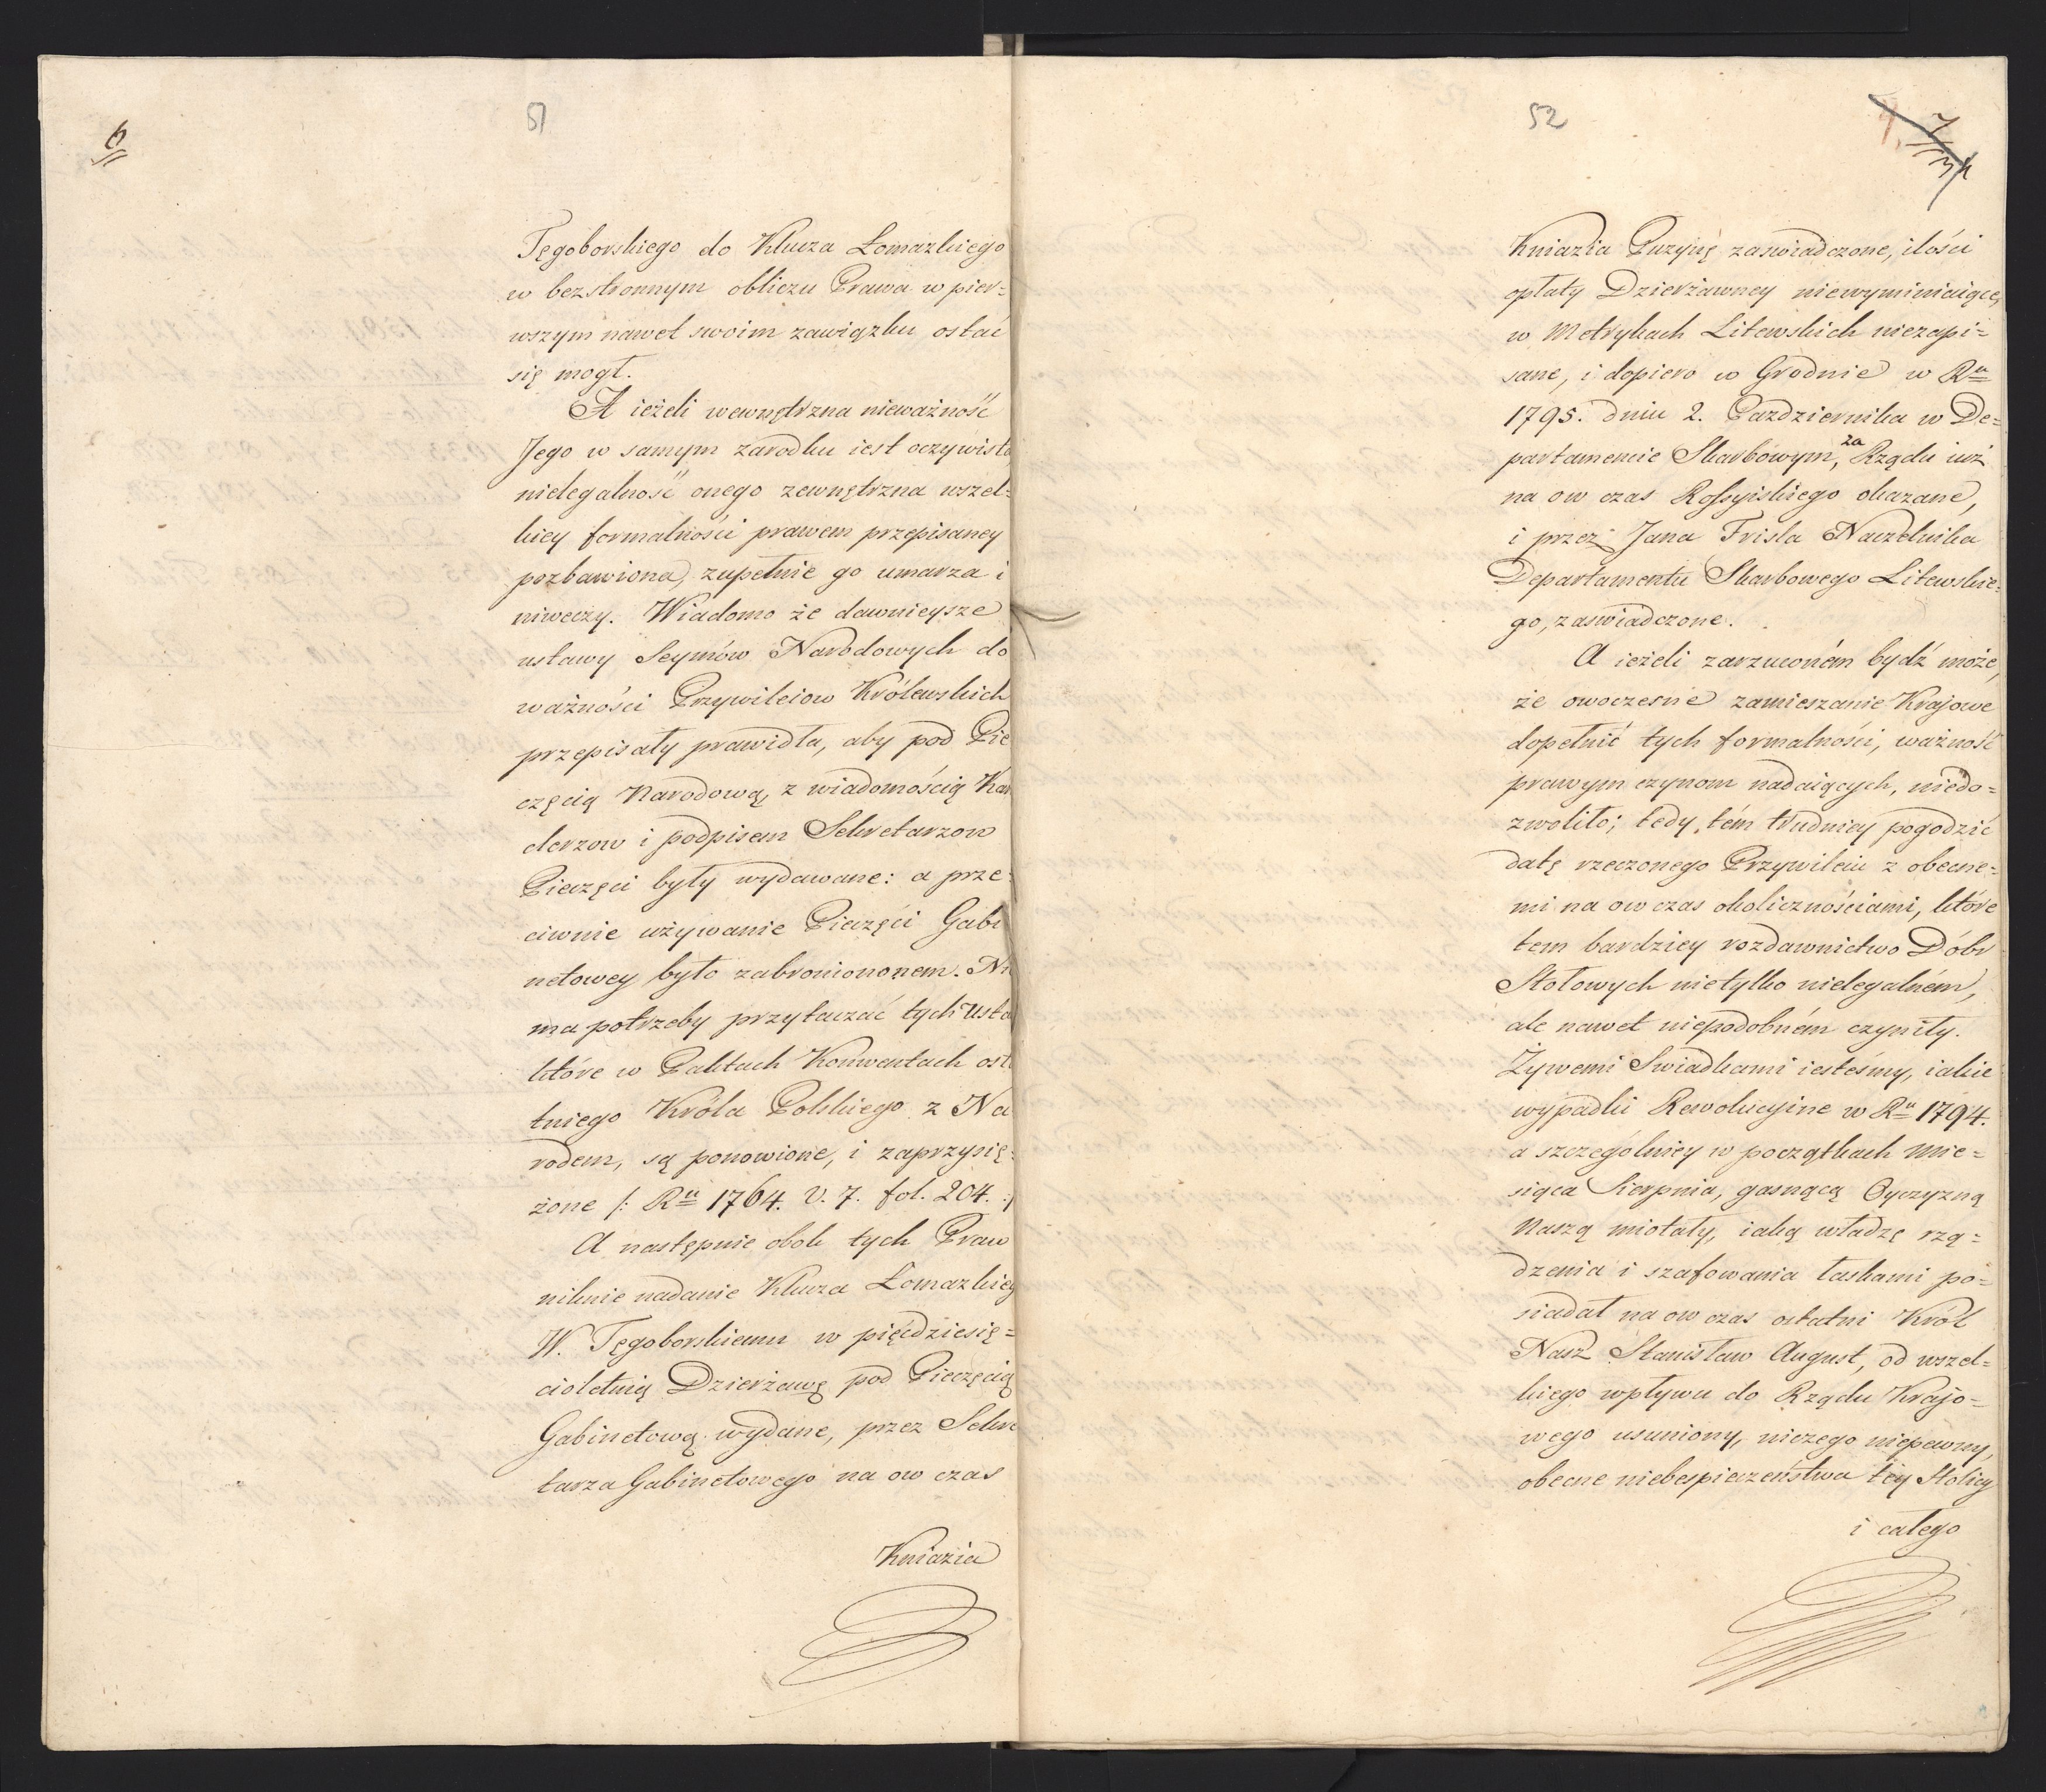 6
51
Tęgoborskiego do Klucza Łomazkiego
w bezstronnym obliczu Prawa w pier=
wszym nawet swoim zawiązku ostać
się mogł.
A ieżeli wewnętrzna nieważność
Jego w samym zarodku iest oczywista,
nielegalność onego zewnętrzna wszel=
kiey formalności prawem przepisaney
pozbawiona, zupełnie go umarza i
niweczy. Wiadomo że dawnieysze
ustawy Seymów Narodowych do
ważności Przywileiow Królewskich
przepisały prawidła, aby pod Pie
częcią Narodową, z wiadomością Kan
clerzow i podpisem Sekretarzow
Pieczęci były wydawane: a prze=
ciwnie używanie Pieczęci Gabi
netowey było zabroniononem. Nie
ma potrzeby przytaczać tych Usta
które w Paktach Konwentach osta
tniego Króla Polskiego z Na
rodem, są ponowione, i zaprzysię=
żone /: Ru 1764. V. 7. fol. 204. :/
A następnie obok tych Praw
niknie nadanie Klucza Łomazkieg
W. Tęgoborskiemu w pięćdziesię=
cioletnią Dzierżawę pod Pieczęcią
Gabinetową wydane, przez Sekre
tarza Gabinetowego na ow czas
Kniazia
52
7
Kniazia Puzynę zaswiadczone, ilości
opłaty Dzierżawney niewyminiaiące,
w Metrykach Litewskich niezapi=
sane, i dopiero w Grodnie w Ru
1795. dniu 2. Pazdziernika w De=
partamencie Skarbowym, za Rządu iuż
na ow czas Rossyiskiego okazane,
i przez Jana Frisla Naczelnika
Departamentu Skarbowego Litewskie=
go, zaswiadczone.
A ieżeli zarzuconém bydź może,
że owoczesne zamieszanie Krajowe
dopełnić tych formalności, ważność
prawym czynom nadaiących, niedo=
zwoliło; tedy, tém trudniey pogodzić
datę rzeczonego Przywileiu z obecne=
mi na ow czas okolicznościami, które
tem bardziey rozdawnictwo Dóbr
Stołowych nietylko nielegalném,
ale nawet niepodobném czyniły.
Żywemi Swiadkami iesteśmy, iakie
wypadki Rewolucyine w Ru 1794.
a szczególniey w początkach Mie=
siąca Sierpnia, gasnącą Oyczyzną
Naszą miotały, iaką władzę rzą=
dzenia i szafowania łaskami po=
siadał na ow czas ostatni Król
Nasz Stanisław August, od wszel=
kiego wpływu do Rządu Krajo=
wego usuniony, niczego niepewny,
obecne niebespieczeństwa tey Stolicy
i całego